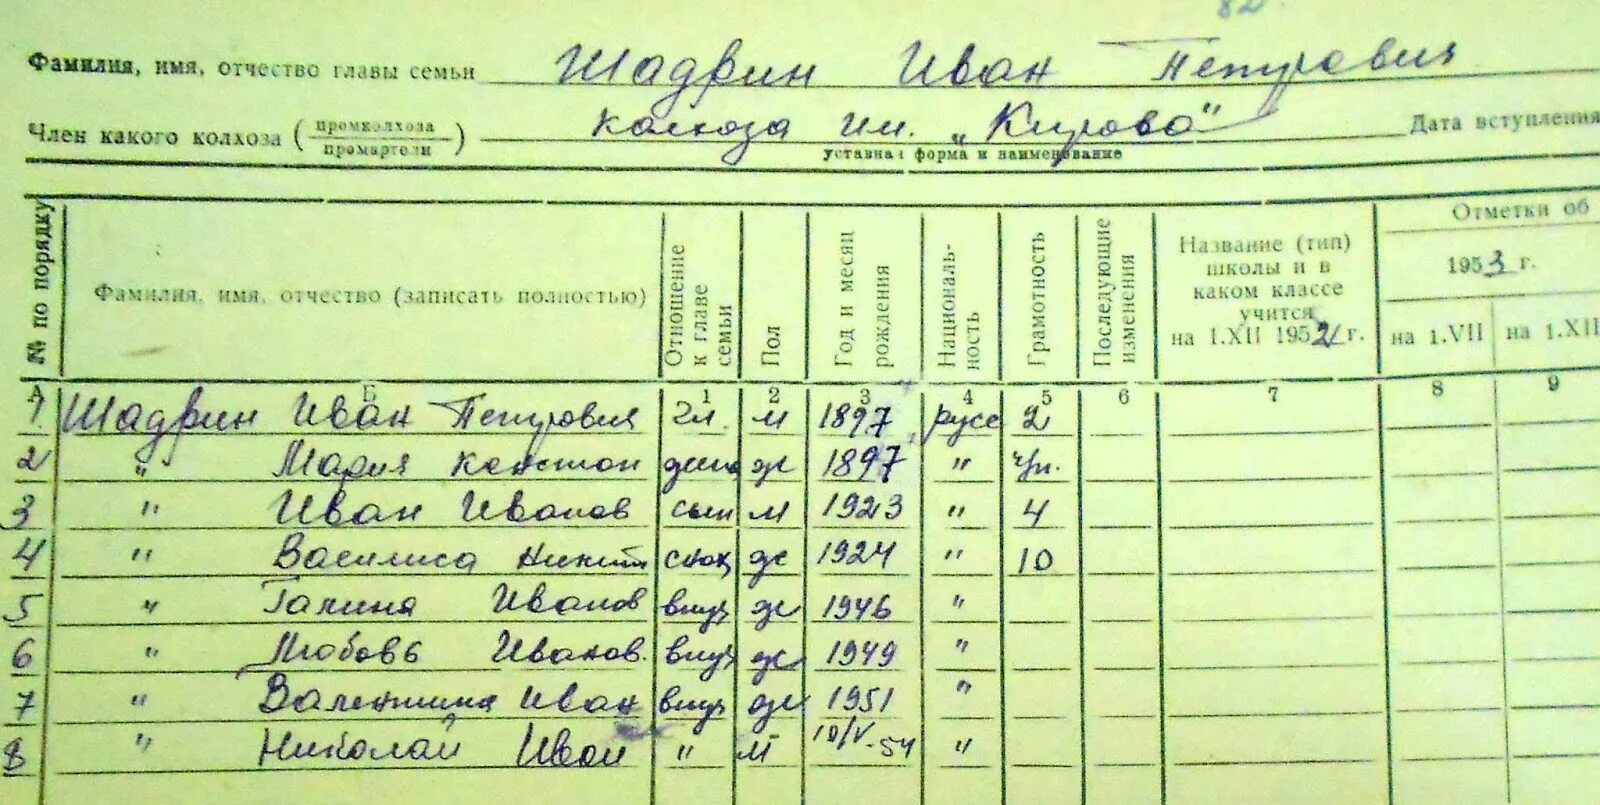 82.
Фамилия, имя, отчество главы семьи Шадрин Иван Петрович
Член какого колхоза (промколхоза / промартели) колхоза им. „Кирова" Дата вступления
уставная форма и наименование
№ по порядку Фамилия, имя, отчество (записать полностью) Отношение к главе семьи Пол Год и месяц рождения Национальность Грамотность Последующие изменения Название (тип) школы и в каком классе учится на 1.XII 1952 г. Отметки об
1953 г.
на 1.VII на 1.XII
А Б 1 2 3 4 5 6 7 8 9
1 Шадрин Иван Петрович гл. м 1897 русс 2
2 " Мария Констан жена ж 1897 " чт.
3 " Иван Иванов сын м 1923 " 4
4 " Василиса Никит снох ж 1924 " 10
5 " Галина Иванов внуч ж 1946 "
6 " Любовь Иванов. внуч ж 1949 "
7 " Валентина Иван внуч ж 1951 "
8 " Николай Иван " м 10/V-54 "